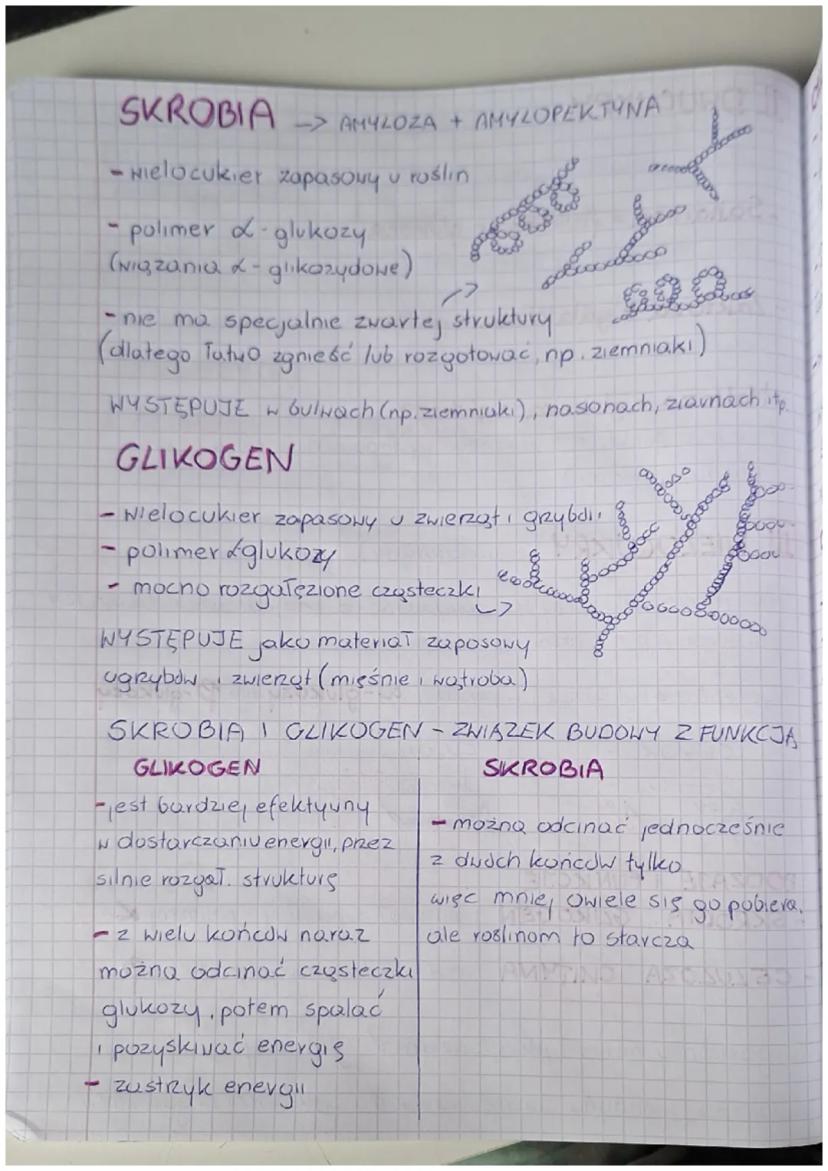 SKROBIA -> AMYLOZA + AMYLOPEKTYNA
- wielocukier zapasowy u roślin
- polimer α-glukozy
(wiązania α-glikozydowe)
- nie ma specjalnie zwartej struktury
(dlatego łatwo zgnieść lub rozgotować, np. ziemniaki)
WYSTĘPUJE w bulwach (np. ziemniaki), nasonach, ziarnach itp.
GLIKOGEN
- wielocukier zapasowy u zwierząt i grzybów
- polimer α glukozy
- mocno rozgałęzione cząsteczki
WYSTĘPUJE jako materiał zaposowy
u grzybów i zwierząt (mięśnie i wątroba)
SKROBIA I GLIKOGEN - ZWIĄZEK BUDOWY Z FUNKCJĄ
GLIKOGEN
- jest bardziej efektywny
w dostarczaniu energii, przez
silnie rozgał. strukturę
- z wielu końców naraz
można odcinać cząsteczki
glukozy, potem spalać
i pozyskiwać energię
- zastrzyk energii
SKROBIA
- można odcinać jednocześnie
z dwóch końców tylko
więc mniej owiele się go pobiera,
ale roślinom to starcza